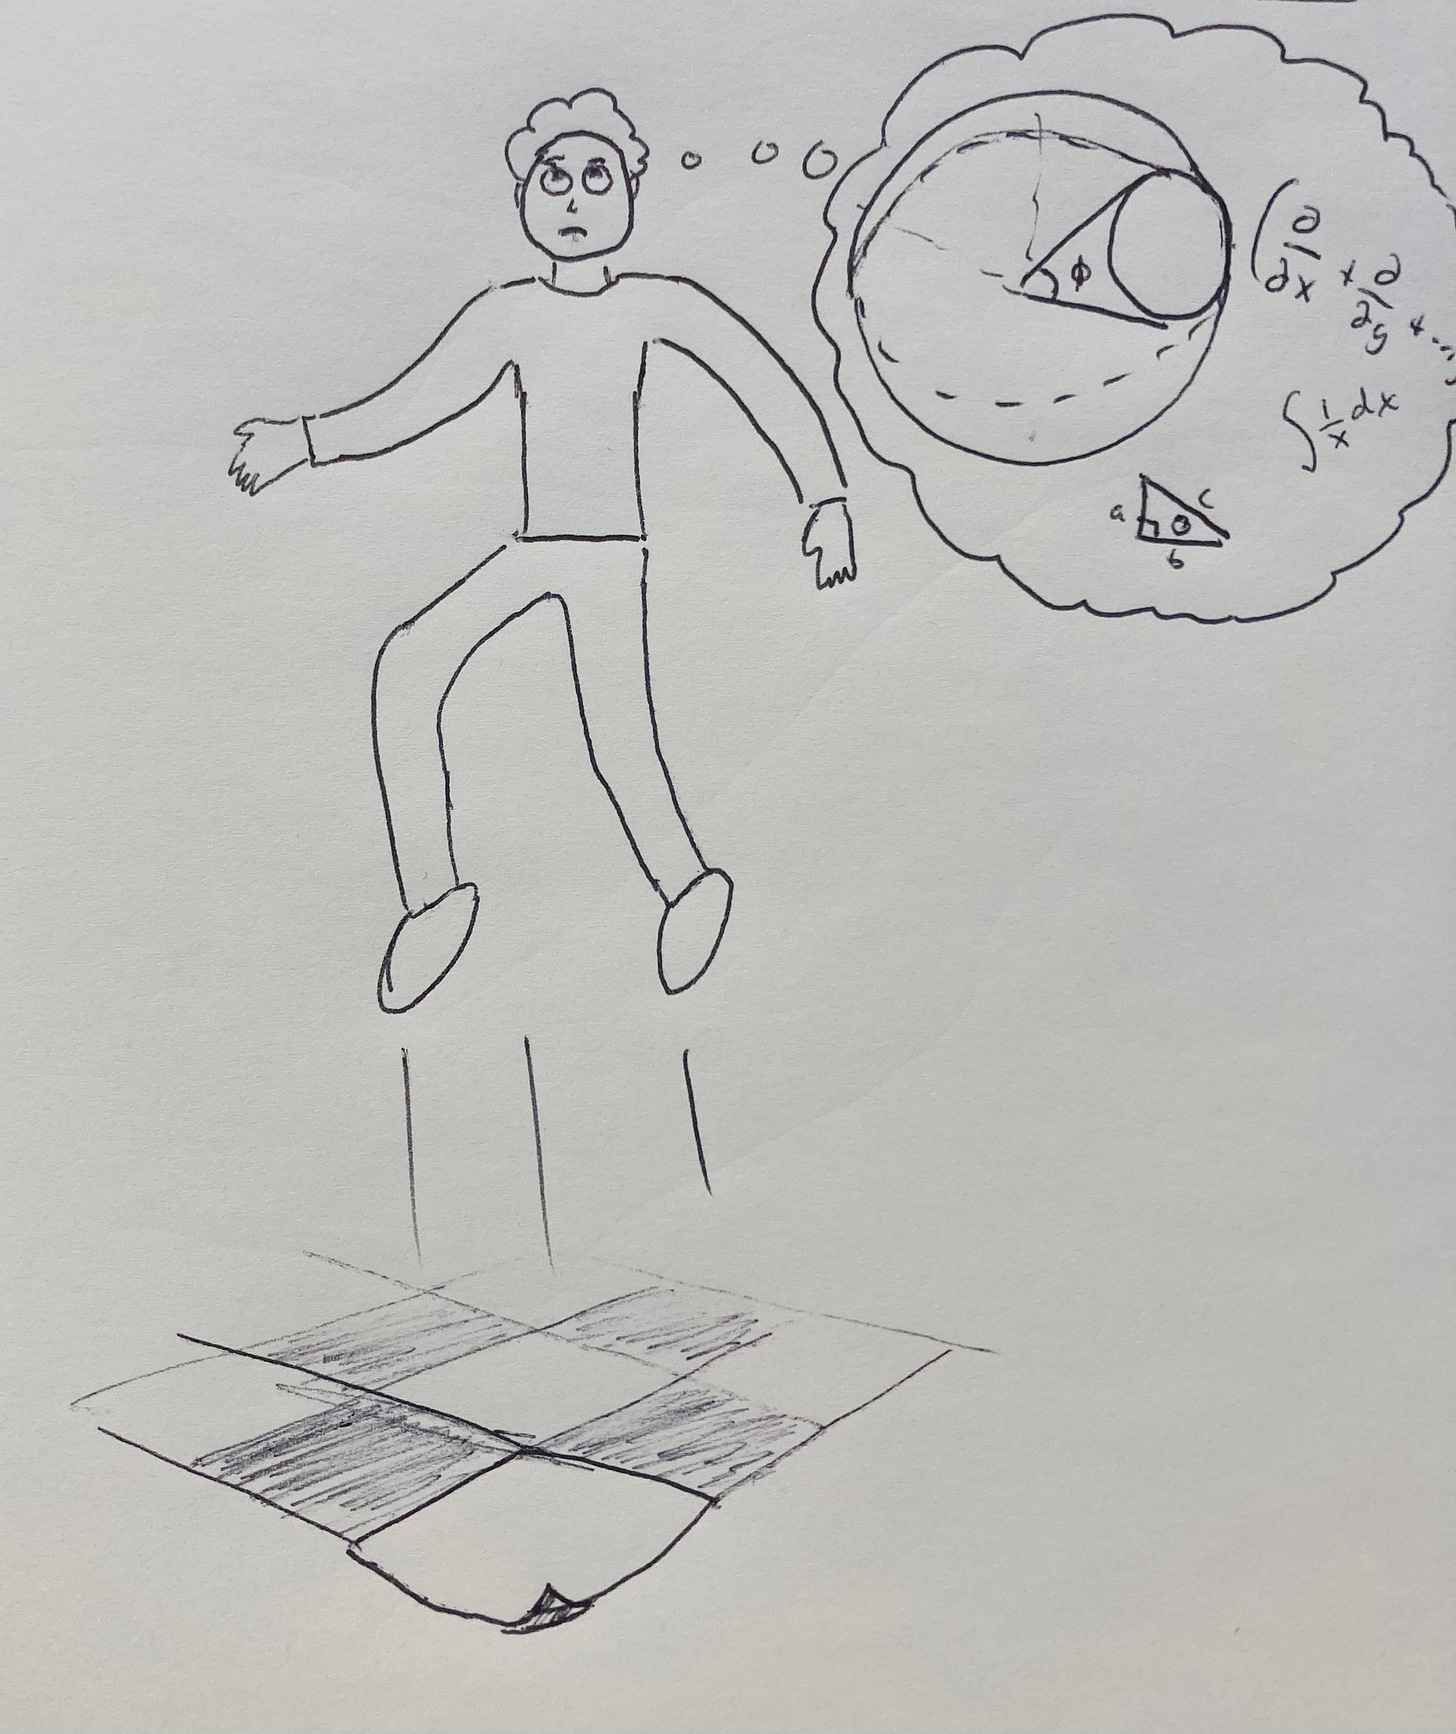 ϕ
(∂/∂x + ∂/∂y + ...
∫ 1/x dx
a
c
θ
b